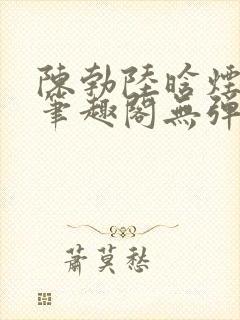 陳勃陸晗煙
筆趣閣無彈
蕭莫愁